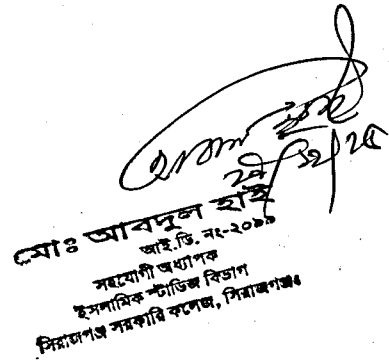 মোঃ আবদুল হাই
আই.ডি. নং-২০৯৯
সহযোগী অধ্যাপক
ইসলামিক স্টাডিজ বিভাগ
সিরাজগঞ্জ সরকারি কলেজ, সিরাজগঞ্জ।